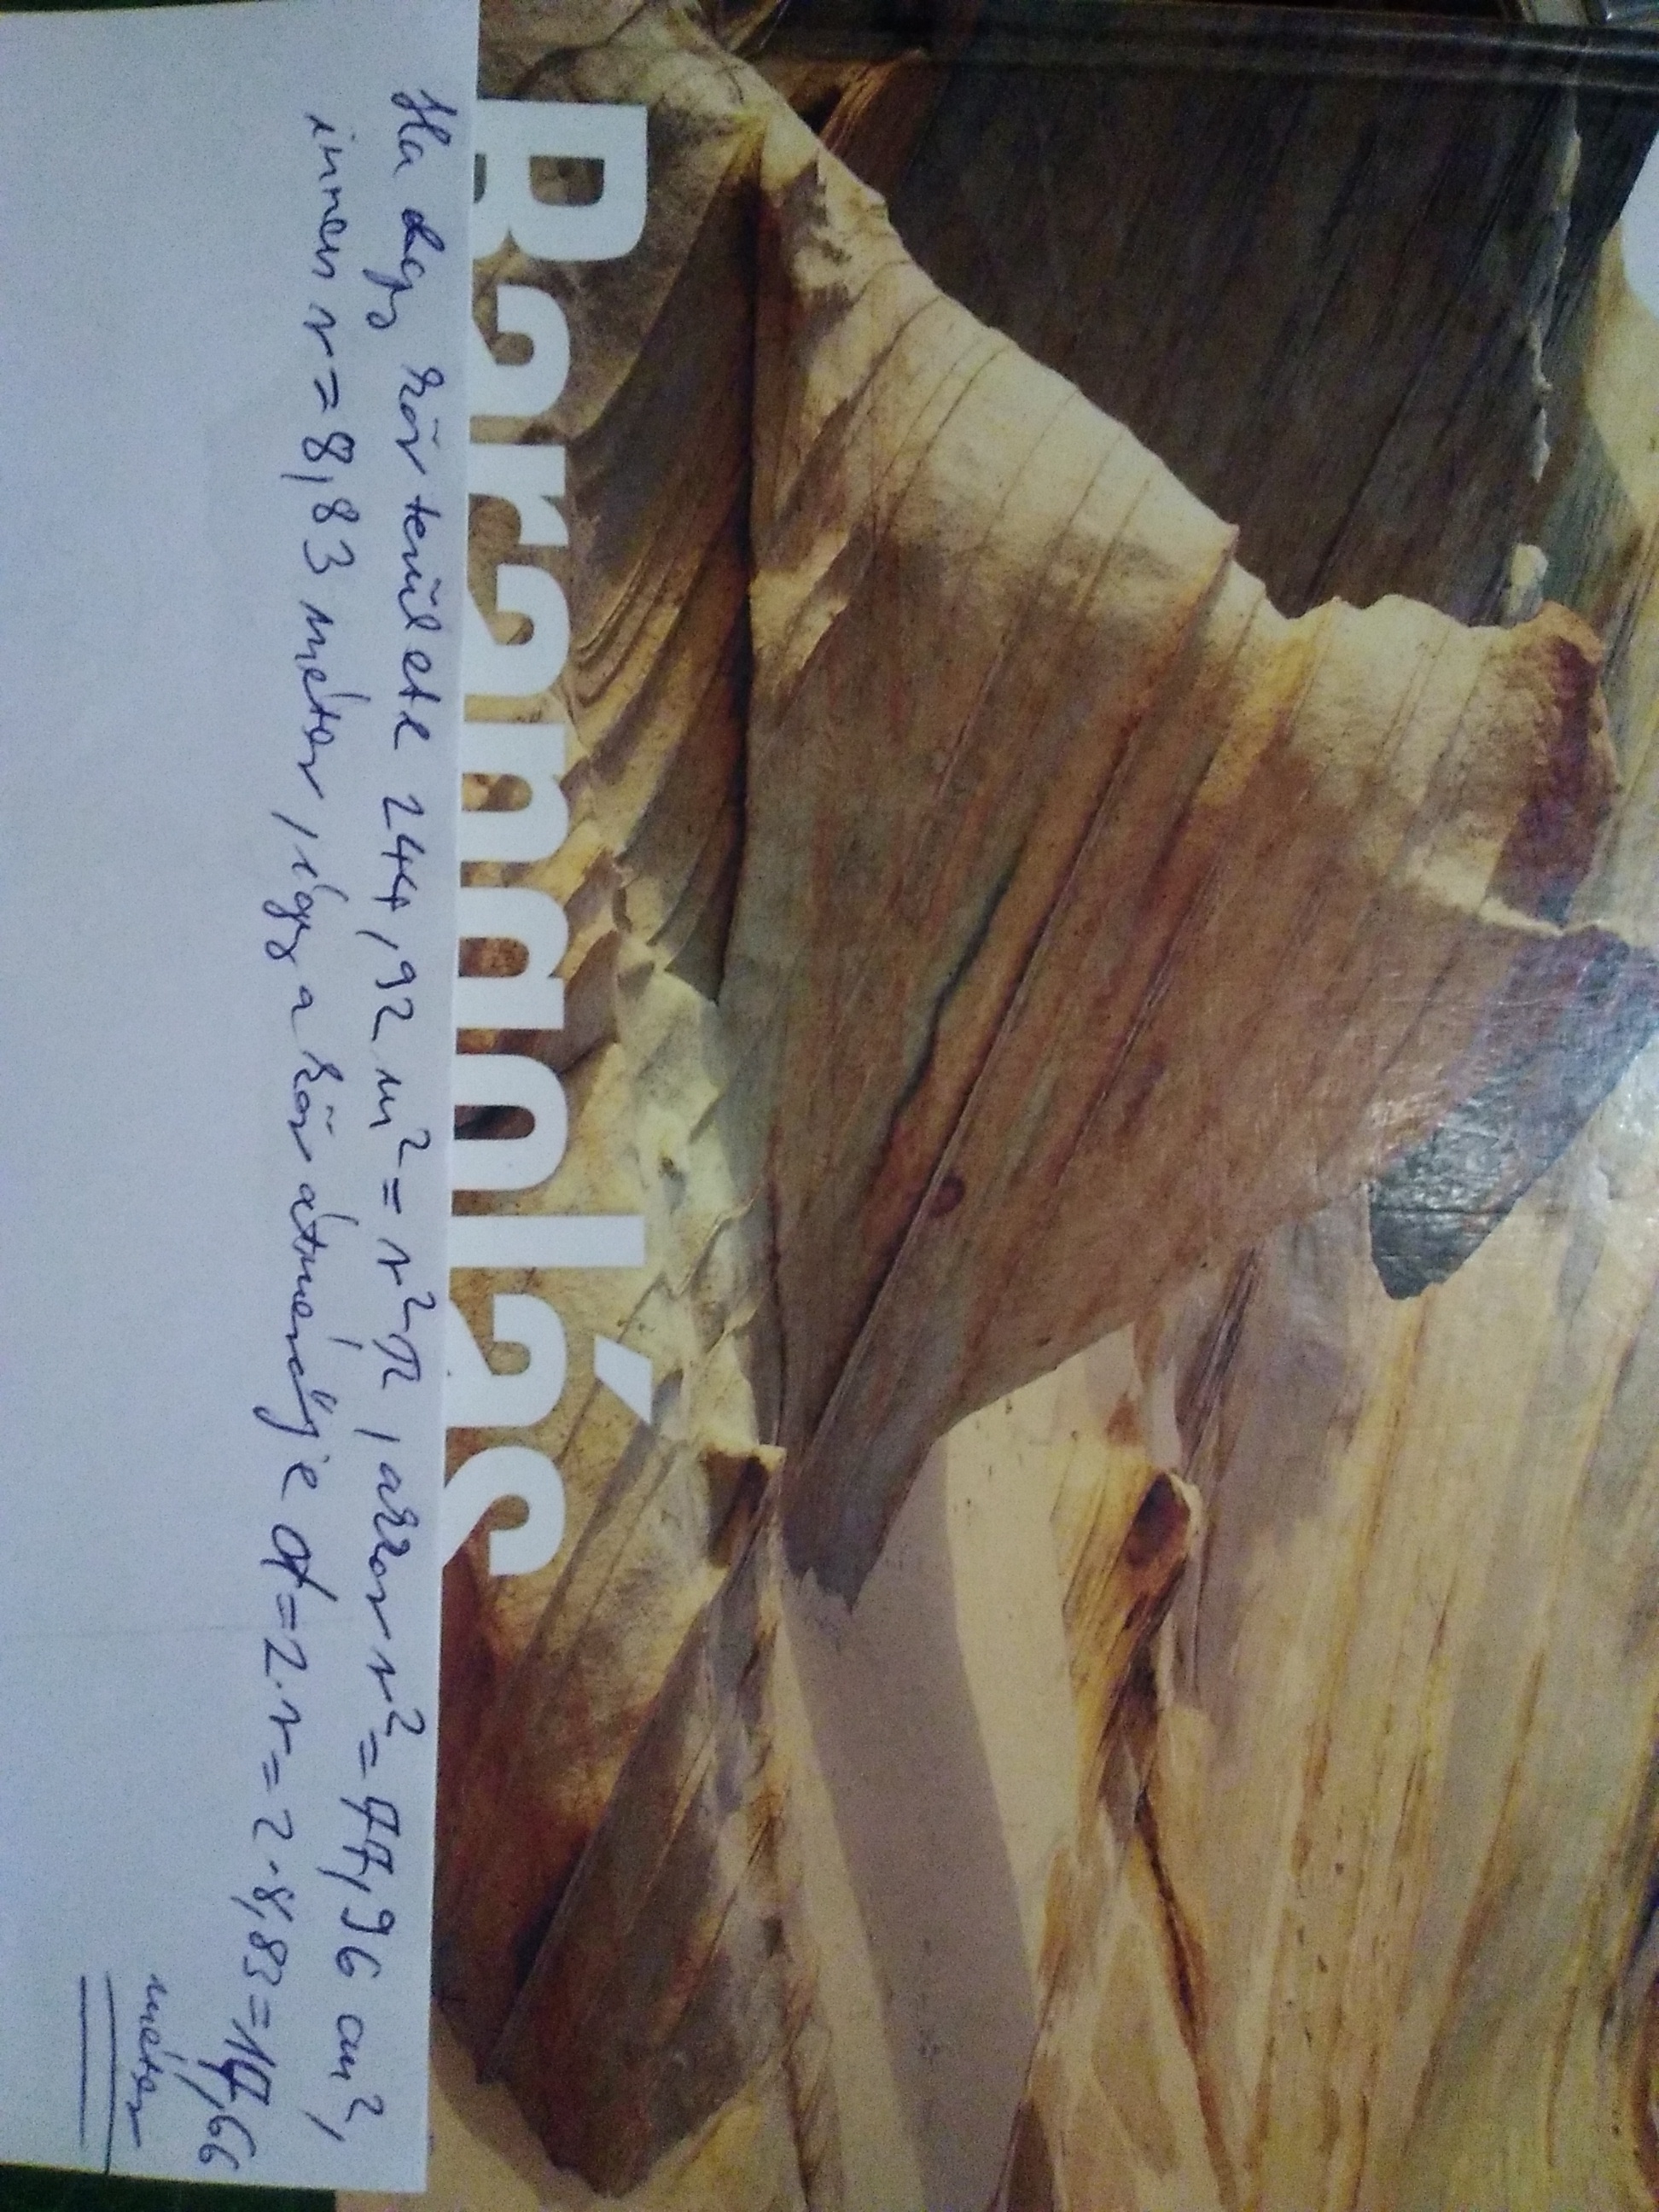 Barangolás
Ha egy kör területe 244,92 m² = r²π, akkor r² = 77,96 cm²,
innen r = 8,83 méter, így a kör átmérője d = 2·r = 2·8,83 = 17,66
méter